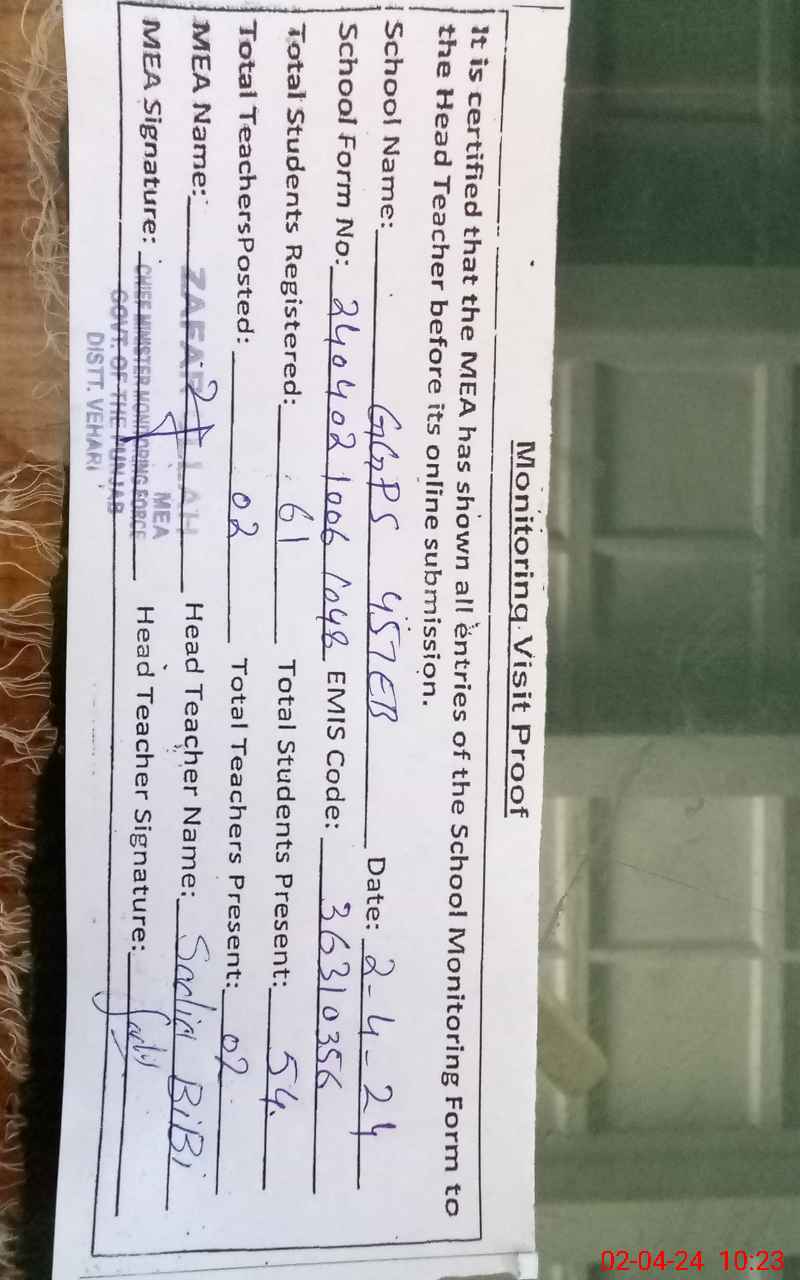 Monitoring Visit Proof
It is certified that the MEA has shown all entries of the School Monitoring Form to
the Head Teacher before its online submission.
School Name: GGPS 457EB Date: 2-4-24
School Form No: 2404021006 1048 EMIS Code: 36310356
Total Students Registered: 61 Total Students Present: 54
Total TeachersPosted: 02 Total Teachers Present: 02
MEA Name: ZAFAR Head Teacher Name: Sadia BiBi
MEA
MEA Signature: Head Teacher Signature: Sadia
CHIEF MINISTER MONITORING FORCE
GOVT. OF THE PUNJAB
DISTT. VEHARI
02-04-24 10:23